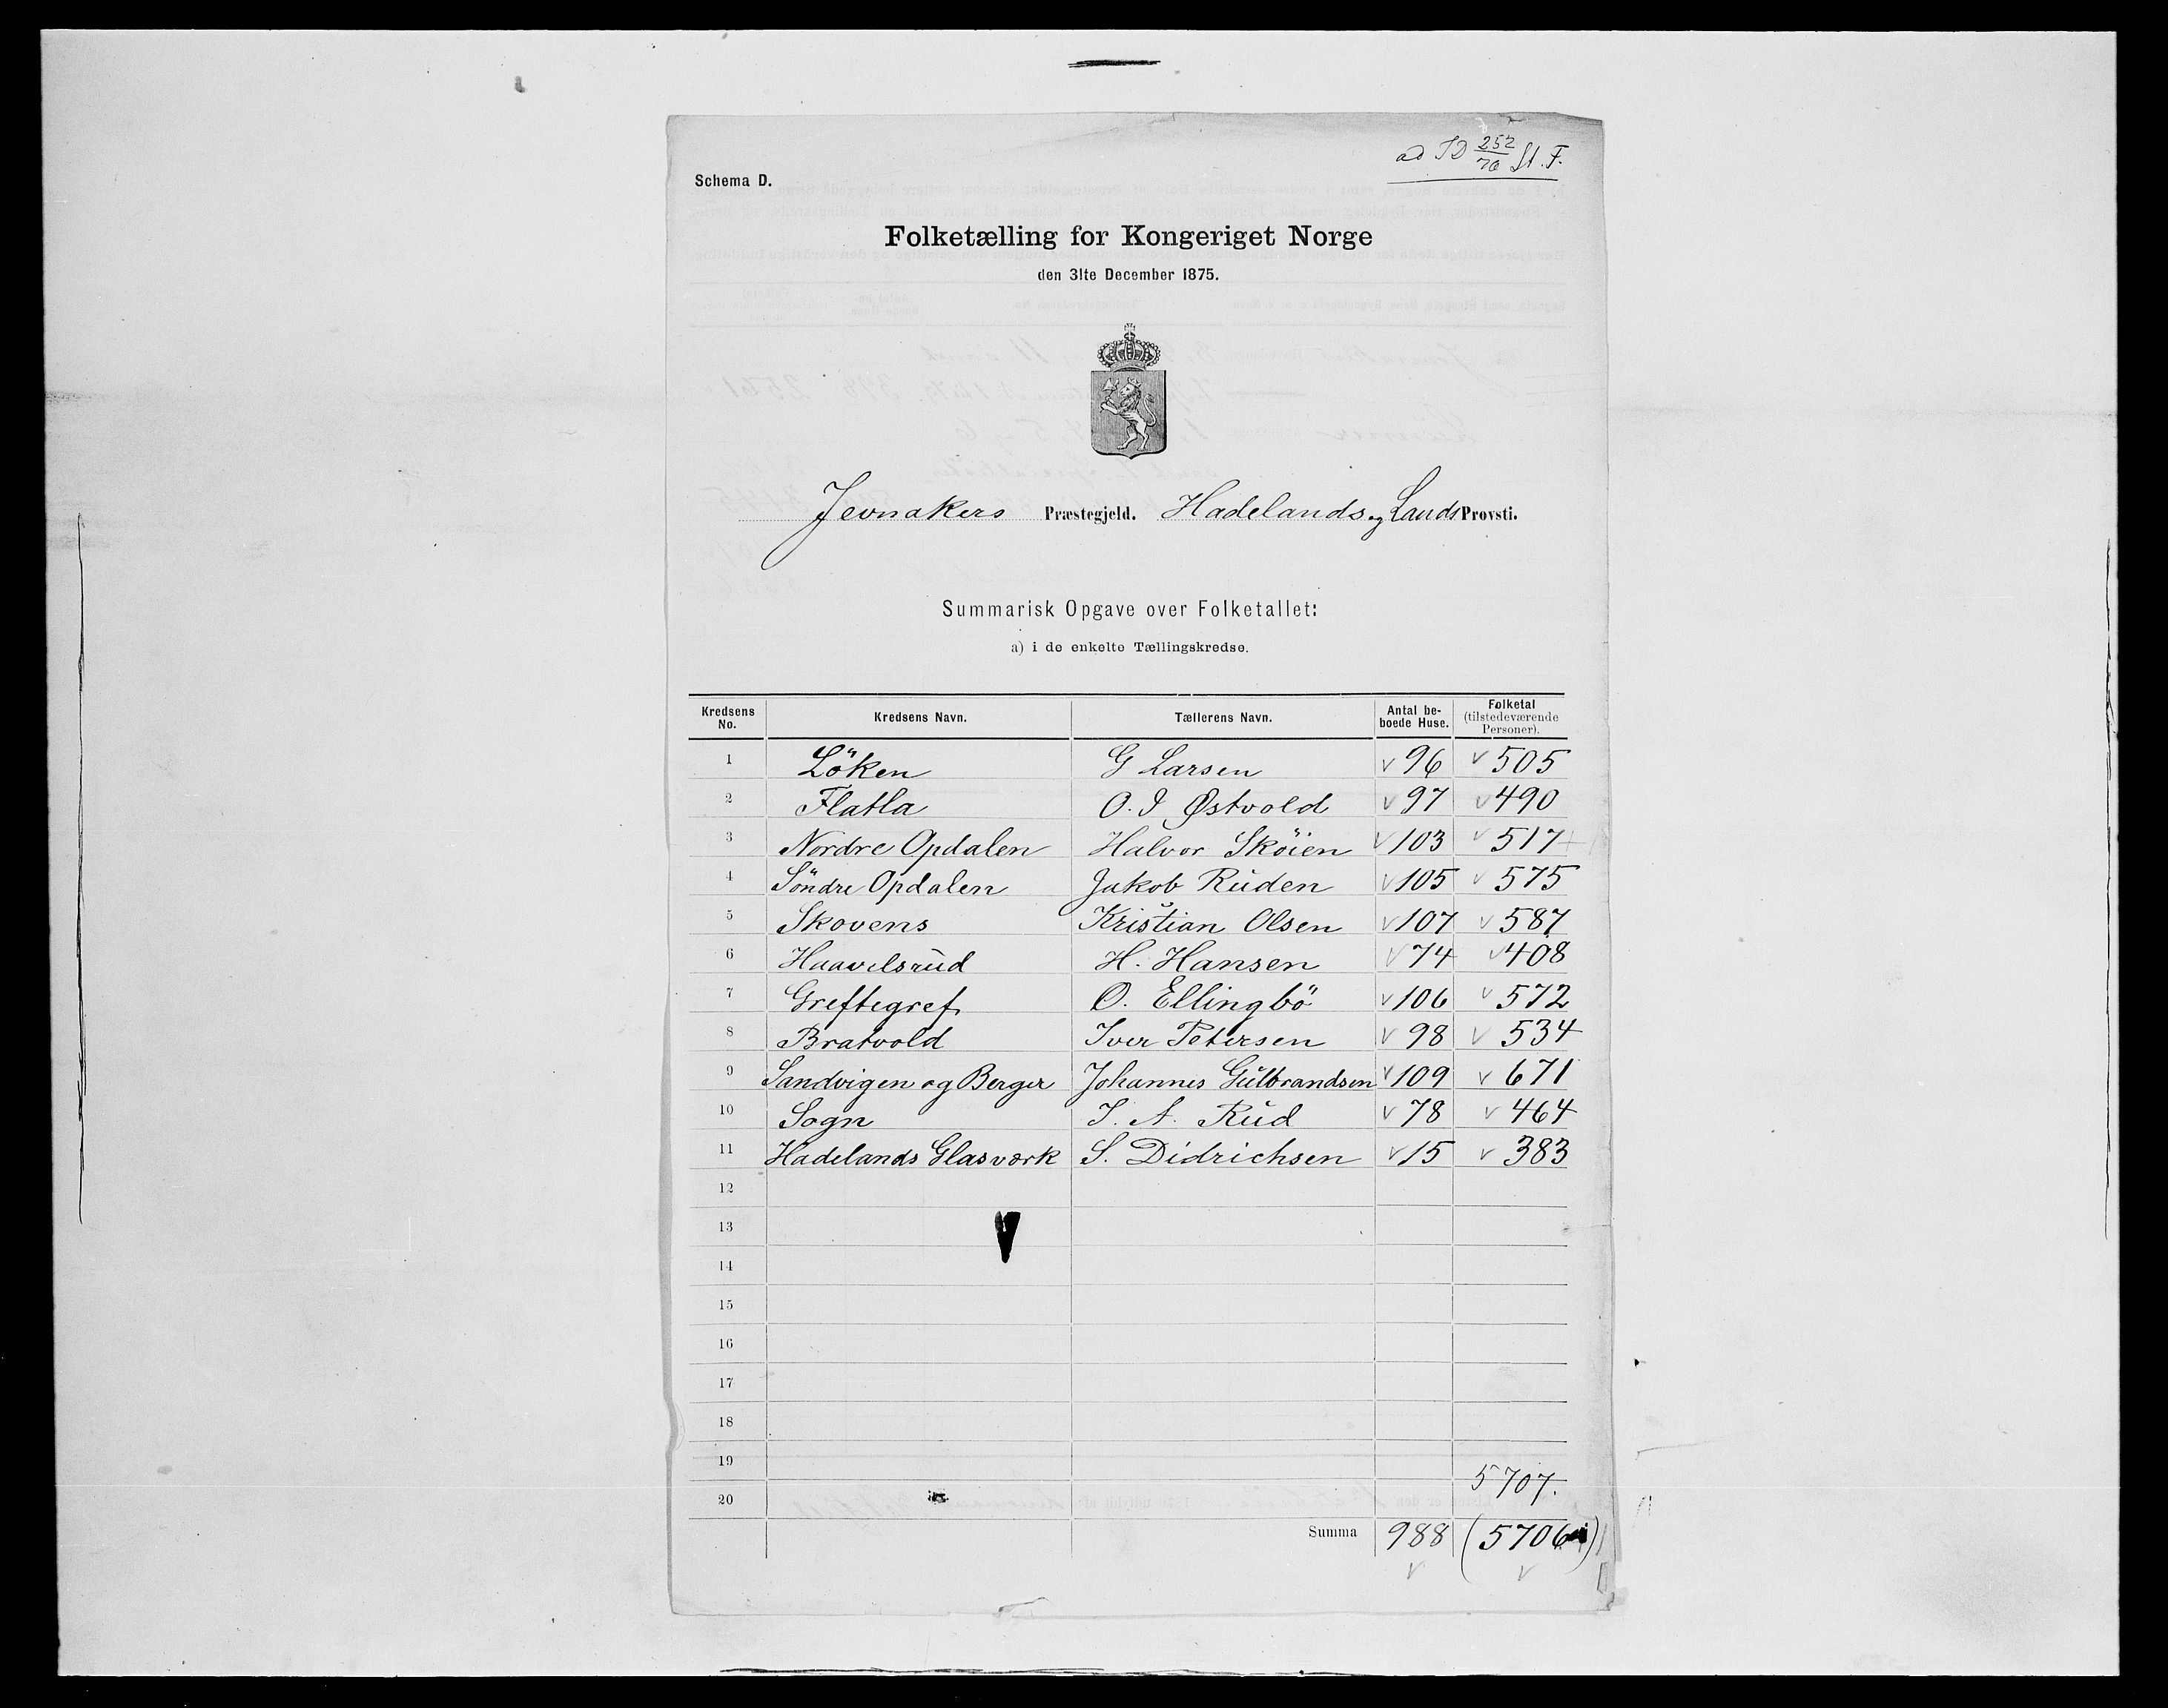 ad ID 252/76 St. F.
Schema D.
Folketælling for Kongeriget Norge
den 31te December 1875.
Jevnakers Præstegjeld. Hadelands og Lands Provsti.
Summarisk Opgave over Folketallet:
a) i de enkelte Tællingskredse.
Kredsens No. Kredsens Navn. Tællerens Navn. Antal beboede Huse. Folketal (tilstedeværende Personer).
1 Löken G Larsen 96 505
2 Flatla O. I Østvold 97 490
3 Nordre Opdalen Halvor Sköien 103 517
4 Söndre Opdalen Jakob Ruden 105 575
5 Skovens Kristian Olsen 107 587
6 Haavelsrud H. Hansen 74 408
7 Greftegref O. Ellingbö 106 572
8 Bratvold Iver Petersen 98 534
9 Sandvigen og Berger Johannes Gulbrandsen 109 671
10 Sogn I. A. Rud 78 464
11 Hadelands Glasværk S. Didrichsen 15 383
12
13
14
15
16
17
18
19
5707.
20
Summa 988 (5706)